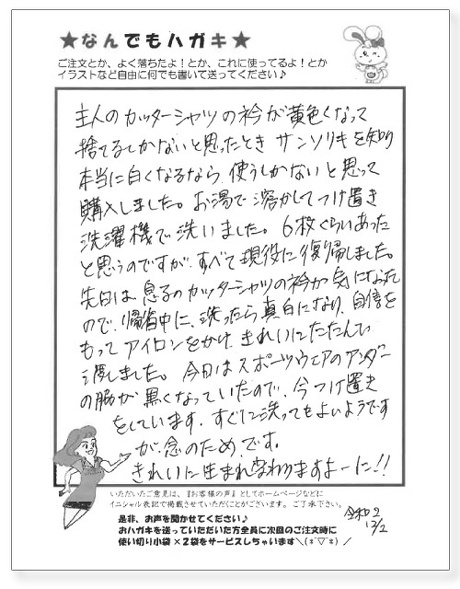 ★なんでもハガキ★
ご注文とか、よく落ちたよ！とか、これに使ってるよ！とか
イラストなど自由に何でも書いて送ってください♪
主人のカッターシャツの衿が黄色くなって
捨てるしかないと思ったとき サンソリキを知り
本当に白くなるなら、使うしかないと思って
購入しました。お湯で溶かしてつけ置き
洗濯機で洗いました。6枚ぐらいあった
と思うのですが、すべて現役に復帰しました。
先日は息子のカッターシャツの衿が気になった
ので、帰省中に、洗ったら真白になり、自信を
もってアイロンをかけ、きれいにたたんで
渡しました。今日はスポーツウェアのアンダー
の脇が黒くなっていたので、今つけ置き
をしています。すぐに洗ってもよいようです
が、念のためです。
きれいに生まれ変わりますよーに!!
いただいたご意見は、『お客様の声』としてホームページなどに
イニシャル表記で掲載させていただくことがございます。ご了承下さい。
是非、お声を聞かせてください♪
おハガキを送っていただいた方全員に次回のご注文時に
使い切り小袋×2袋をサービスしちゃいます＼(*´▽`*)／
令和2
12/2